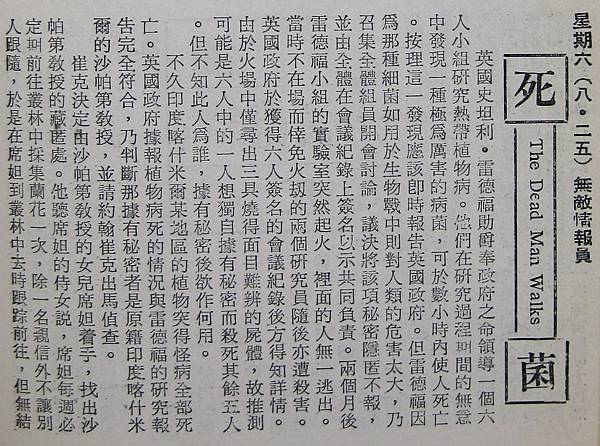 星期六(八・二五)無敵情報員
死菌
The Dead Man Walks
英國史坦利。雷德福助爵奉政府之命領導一個六
人小組研究熱帶植物病。他們在研究過程期間的無意
中發現一種極爲厲害的病菌，可於數小時內使人死亡
。按理這一發現應該即時報告英國政府。但雷德福因
爲那種細菌如用於生物戰中則對人類的危害太大，乃
召集全體組員開會討論，議決將該項秘密隱匿不報，
並由全體在會議紀錄上簽名以示共同負責。兩個月後
雷德福小組的實驗室突然起火，裡面的人無一逃出。
當時不在場而倖免火刼的兩個研究員隨後亦遭殺害。
英國政府於獲得六人簽名的會議紀錄後方得知詳情。
由於火場中僅尋出三具燒得面目難辨的屍體，故推測
可能是六人中的一人想獨自據有秘密而殺死其餘五人
。但不知此人爲誰，據有秘密後欲作何用。
不久印度喀什米爾某地區的植物突得怪病全部死
亡。英國政府據報植物病死的情況與雷德福的研究報
告完全符合，乃判斷那據有秘密者是原籍印度喀什米
爾的沙帕第教授，並請約翰崔克出馬偵查。
崔克決定由沙帕第教授的女兒席妲着手，找出沙
帕第教授的藏匿處。他聽席妲的侍女說，席妲每週必
定期前往叢林中採集蘭花一次，除一名親信外不讓別
人跟隨，於是在席妲到叢林中去時跟踪前往，但無結